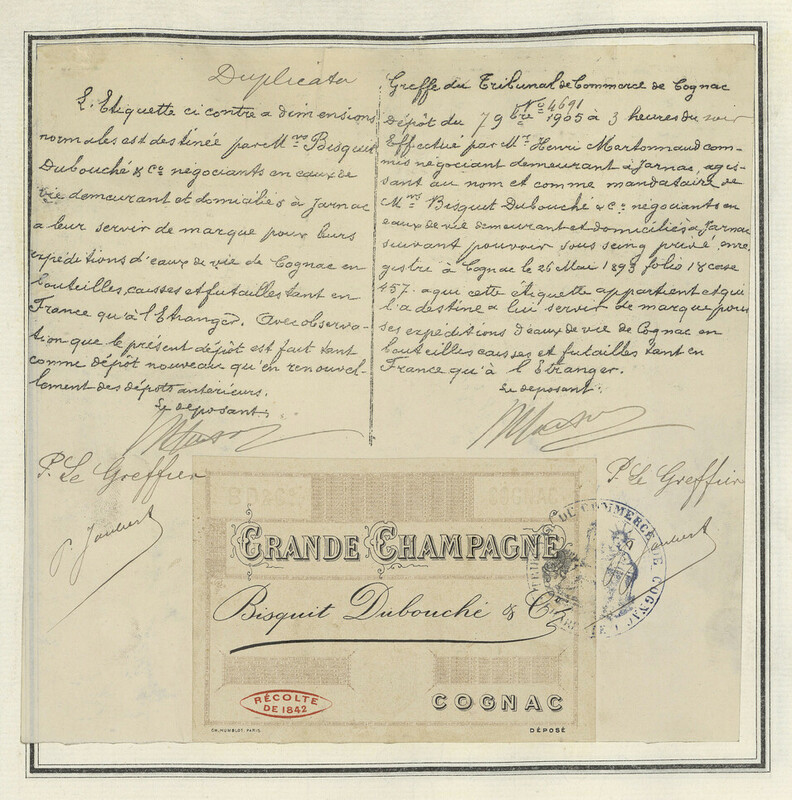 Duplicata
L'Etiquette ci contre a dimensions
normales est destinée par Mrs Bisquit
Dubouché & Cie négociants en eaux de
vie demeurant et domiciliés à Jarnac
a leur servir de marque pour leurs
expéditions d'eaux de vie de Cognac en
bouteilles, caisses et futailles tant en
France qu'à l'Etranger. Avec observa-
tion que le présent dépôt est fait tant
comme dépôt nouveau qu'en renouvel-
lement des dépôts antérieurs.
Le deposant:
P. Le Greffier
P. Jaubert
Greffe du Tribunal de Commerce de Cognac
No 4691
Dépôt du 7 9bre 1905 à 3 heures du soir
Effectué par Mr Henri Martonnaud com-
mis négociant demeurant à Jarnac, agis-
sant au nom et comme mandataire de
Mrs Bisquit Dubouché & Cie négociants en
eaux de vie demeurant et domiciliés à Jarnac
suivant pouvoir sous seing privé enre
gistré à Cognac le 26 Mai 1893 folio 18 case
457. a qui cette étiquette appartient et qui
l'a destine a lui servir de marque pour
ses expéditions d'eaux de vie de Cognac en
bouteilles caisses et futailles tant en
France qu'à l'Etranger.
Le deposant:
P. Le Greffier
Jaubert
COGNAC
GRANDE CHAMPAGNE
Bisquit Dubouché & Co
RÉCOLTE
DE 1842
COGNAC
CH. HUMBLOT PARIS
DÉPOSÉ
DE COMMERCE DE COGNAC